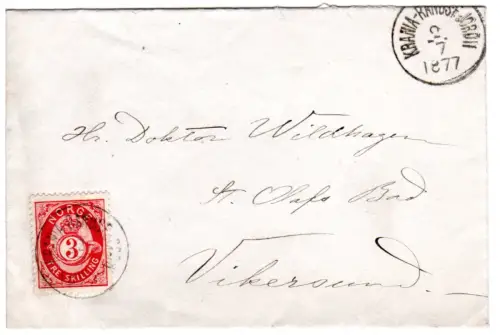 KRANIA-RANDSFJORDN
2
7
1877
Hr. Doktor Wildhagen
St. Olafs Bad
Vikersund.
NORGE
3
TRE SKILLING